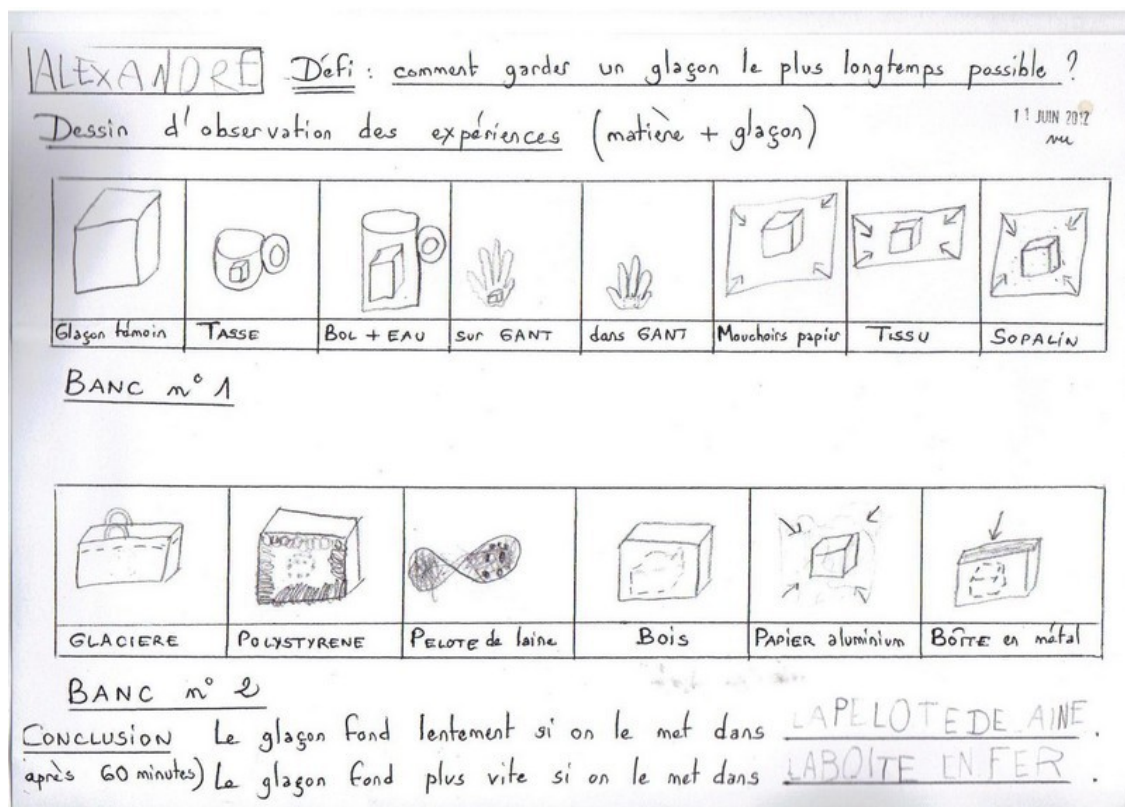 ALEXANDRE Défi : comment garder un glaçon le plus longtemps possible ?
Dessin d'observation des expériences (matière + glaçon)
11 JUIN 2012
vu
Glaçon témoin TASSE BOL + EAU sur GANT dans GANT Mouchoirs papier TISSU SOPALIN
BANC n° 1
GLACIERE POLYSTYRENE PELOTE de laine BOIS PAPIER aluminium BOÎTE en métal
BANC n° 2
CONCLUSION Le glaçon fond lentement si on le met dans LAPELOTEDE AINE .
après 60 minutes) Le glaçon fond plus vite si on le met dans LABOITE EN FER .